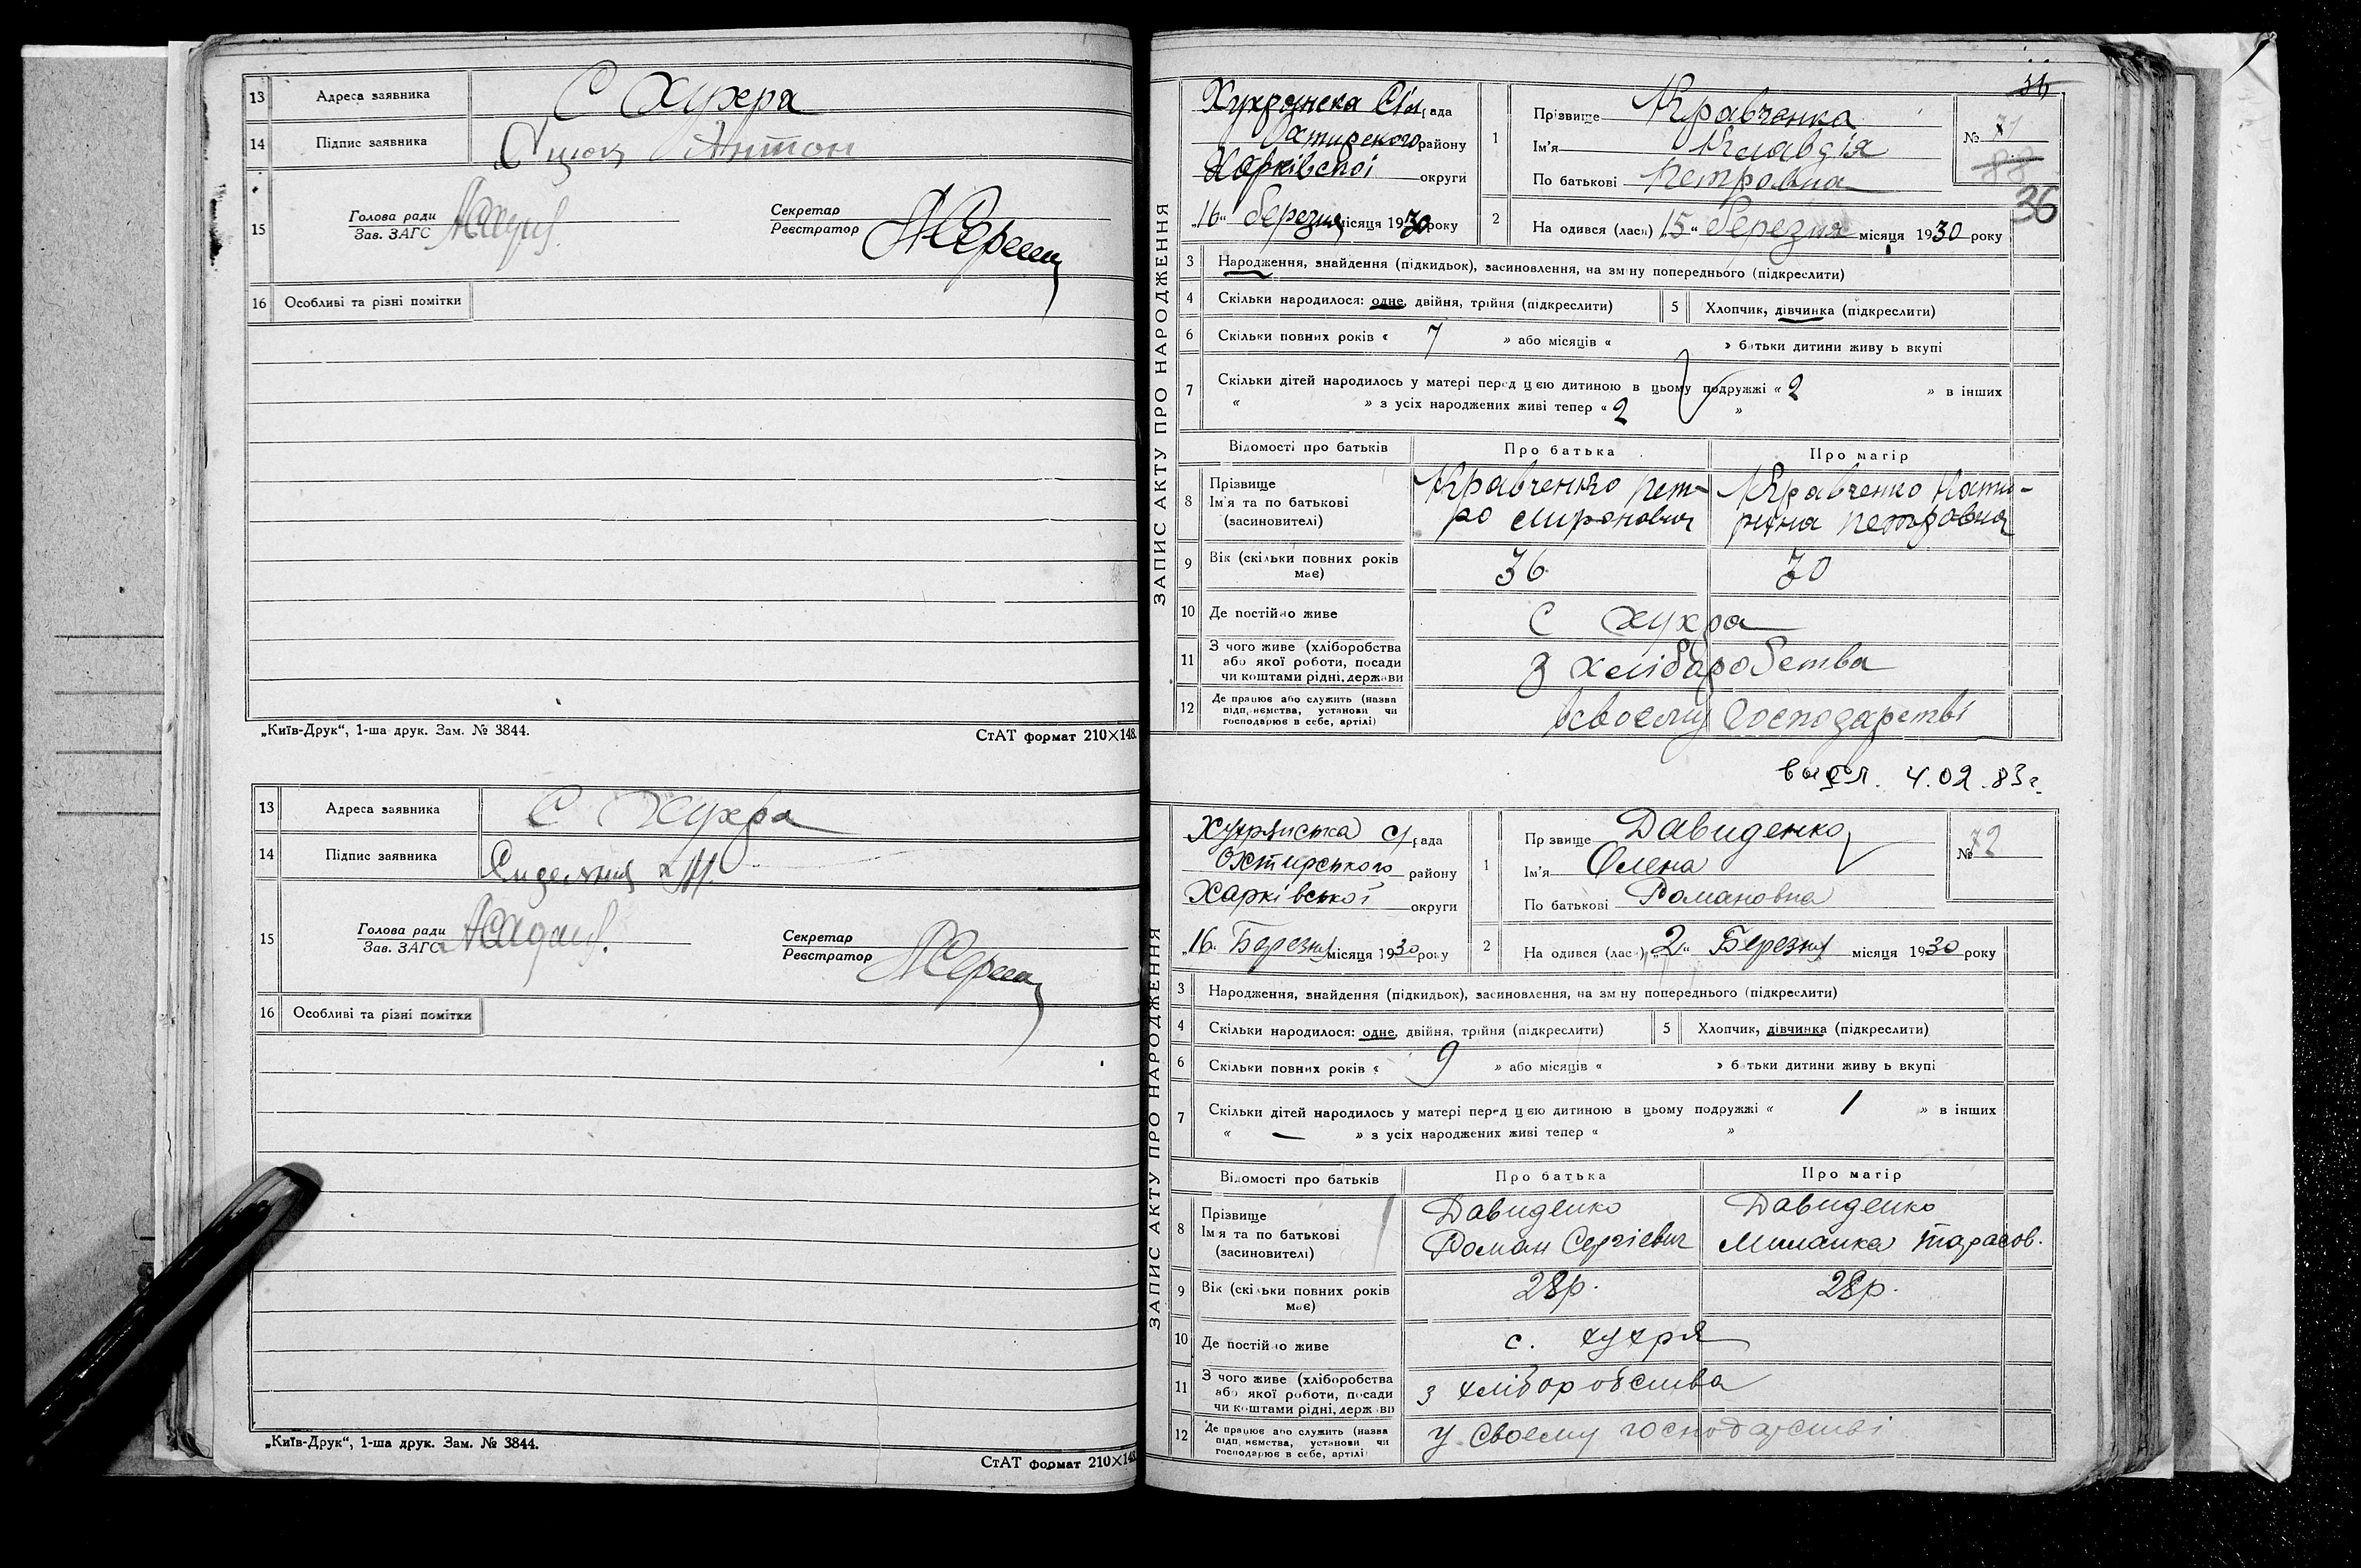 13 Адреса заявника С Хухра
14 Підпис заявника Антон
15 Голова ради
Зав. ЗАГС
Секретар
Реєстратор
16 Особливі та різні помітки
„Київ-Друк“, 1-ша друк. Зам. № 3844.
СтАТ формат 210×148.
13 Адреса заявника С Хухра
14 Підпис заявника
15 Голова ради
Зав. ЗАГС
Секретар
Реєстратор
16 Особливі та різні помітки
„Київ-Друк“, 1-ша друк. Зам. № 3844.
СтАТ формат 210×148.
36
ЗАПИС АКТУ ПРО НАРОДЖЕННЯ
Сіл рада
Охтирского району
Харківської округи
„16“ березня місяця 1930 року
1 Прізвище Кравченка
Ім'я Клавдія
По батькові Петровна
№ 71
88
2 На одився (лась) 15“ березня місяця 1930 року
3 Народження, знайдення (підкидьок), засиновлення, на зміну попереднього (підкреслити)
4 Скільки народилося: одне, двійня, трійня (підкреслити)
5 Хлопчик, дівчинка (підкреслити)
6 Скільки повних років « 7 » або місяців « » батьки дитини живу ь вкупі
7 Скільки дітей народилось у матері перед цією дитиною в цьому подружжі « 2 » в інших
« » з усіх народжених живі тепер « 2 »
Відомості про батьків Про батька Про матір
8 Прізвище
Ім'я та по батькові
(засновителі)
Кравченко Пет-
ро Миронович
Кравченко
Петровна
9 Вік (скільки повних років
має) 36 30
10 Де постійно живе С Хухра
11 З чого живе (хліборобства
або якої роботи, посади
чи коштами рідні, держави
З хліборобства
12 Де працює або служить (назва
підприємства, установи чи
господарює в себе, артілі)
в своєму господарстві
выдл. 4.02.83г.
ЗАПИС АКТУ ПРО НАРОДЖЕННЯ
Хухрянська с/рада
Охтирського району
Харківської округи
„16“ Березня місяця 1930 року
1 Пр звище Давиденко
Ім'я Олена
По батькові Романовна
№ 72
2 На одився (лась) „2“ Березня місяця 1930 року
3 Народження, знайдення (підкидьок), засиновлення, на зм ну попереднього (підкреслити)
4 Скільки народилося: одне, двійня, трійня (підкреслити)
5 Хлопчик, дівчинка (підкреслити)
6 Скільки повних років « 9 » або місяців « » батьки дитини живу ь вкупі
7 Скільки дітей народилось у матері перед цією дитиною в цьому подружжі « 1 » в інших
« — » з усіх народжених живі тепер « »
Відомості про батьків Про батька Про матір
8 Прізвище
Ім'я та по батькові
(засновителі)
Давиденко
Роман Сергієвич
Давиденко
Миланка Тарасов.
9 Вік (скільки повних років
має) 28р. 28р.
10 Де постійно живе с. Хухря
11 З чого живе (хліборобства
або якої роботи, посади
чи коштами рідні, держави
з хліборобства
12 Де працює або служить (назва
підприємства, установи чи
господарює в себе, артілі
У своєму господарстві